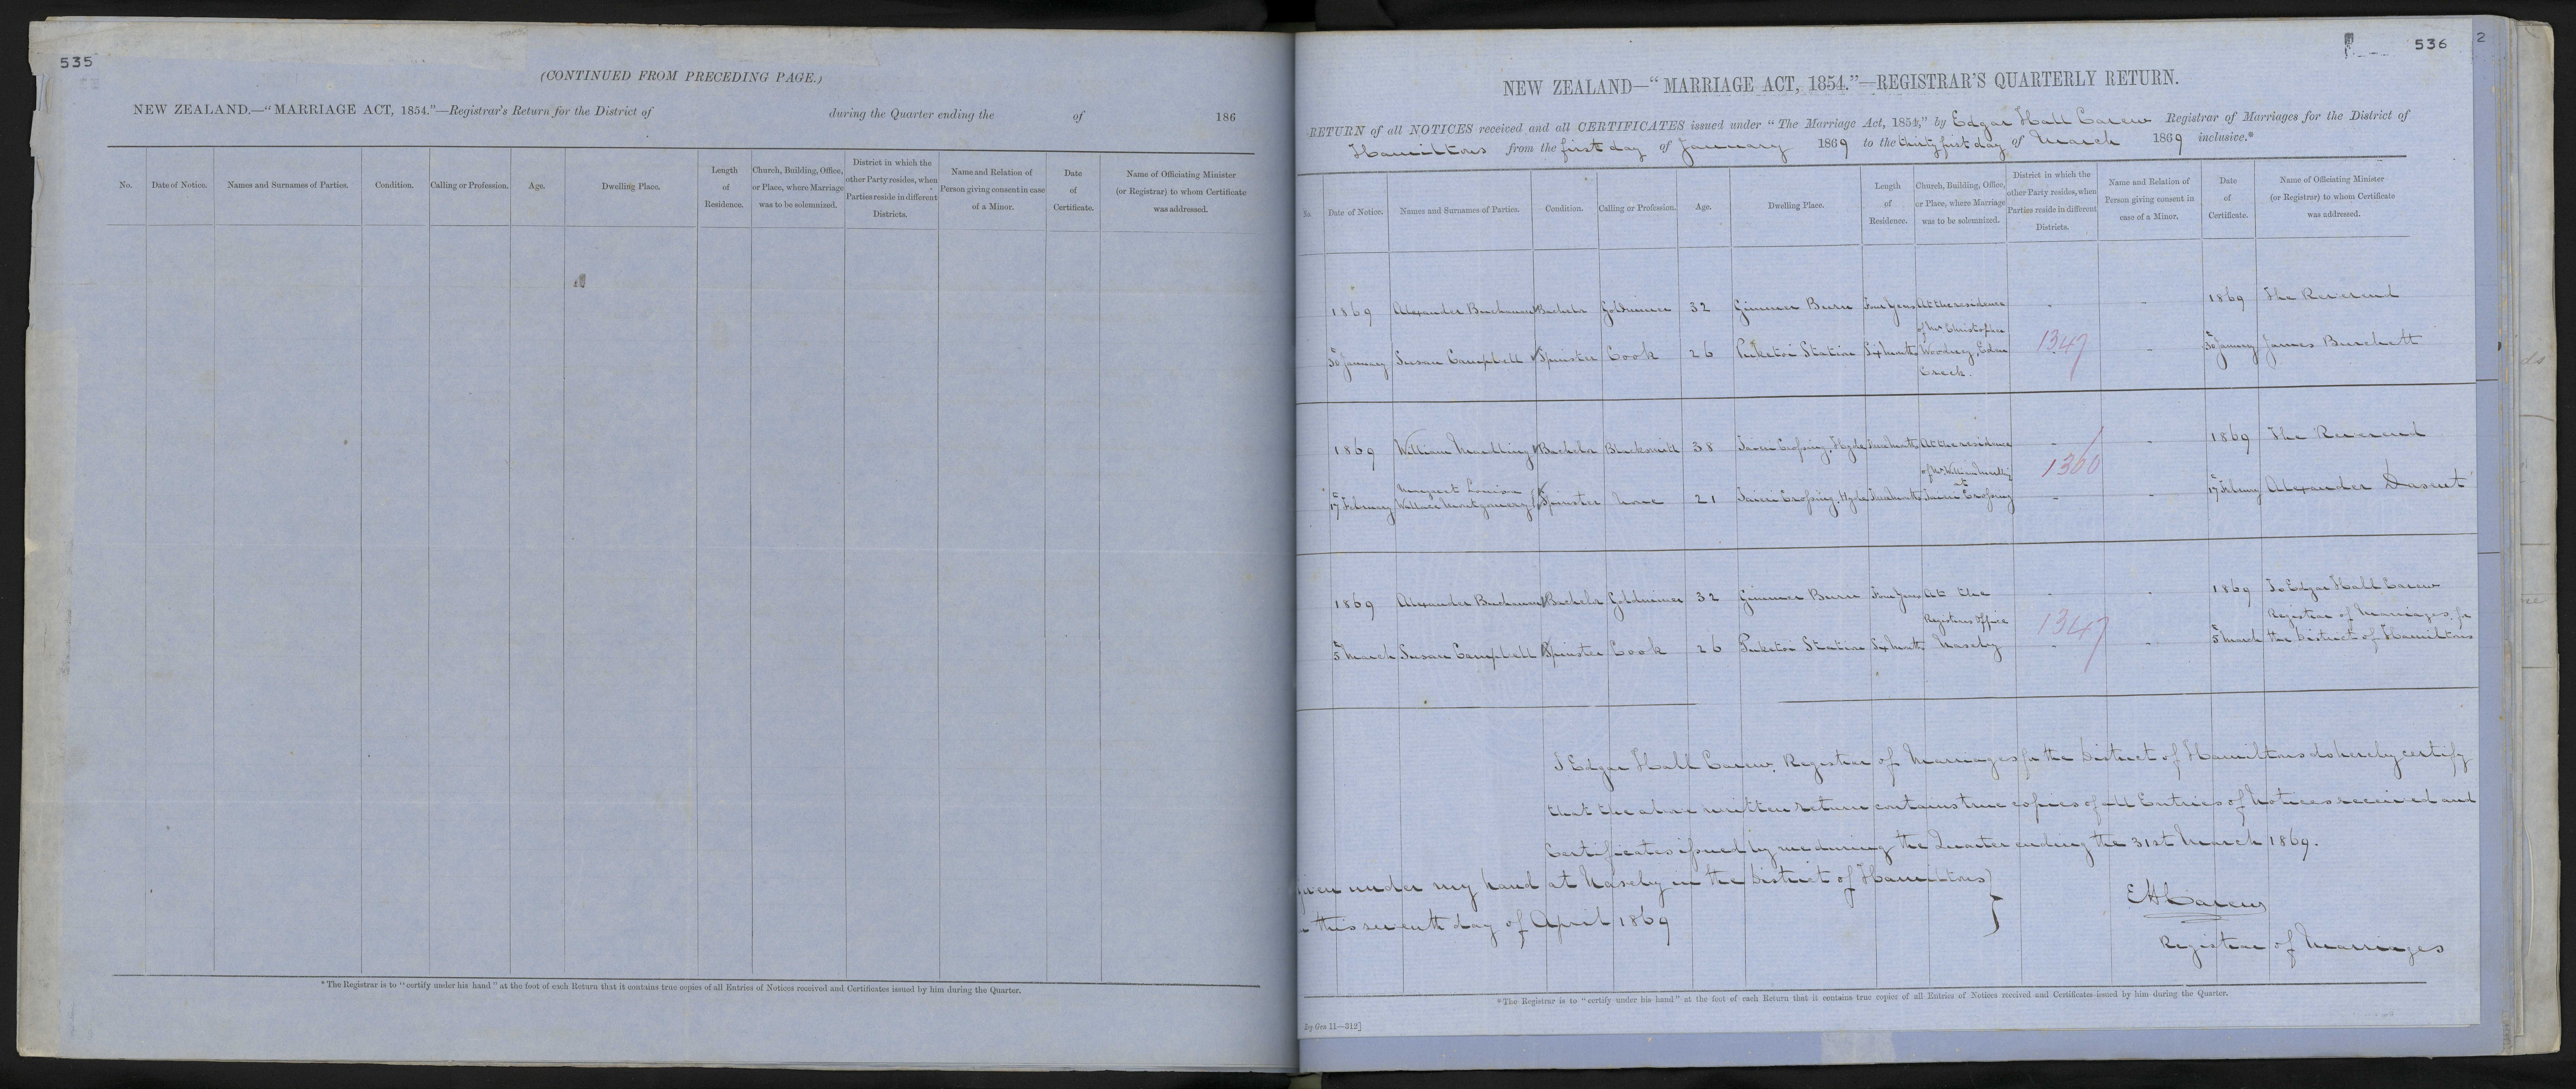 535
(CONTINUED FROM PRECEDING PAGE.)
NEW ZEALAND.—"MARRIAGE ACT, 1854."—Registrar's Return for the District of during the Quarter ending the of 186
No. Date of Notice. Names and Surnames of Parties. Condition. Calling or Profession. Age. Dwelling Place. Length of Residence. Church, Building, Office, or Place, where Marriage was to be solemnized. District in which the other Party resides, when Parties reside in different Districts. Name and Relation of Person giving consent in case of a Minor. Date of Certificate. Name of Officiating Minister (or Registrar) to whom Certificate was addressed.
*The Registrar is to "certify under his hand" at the foot of each Return that it contains true copies of all Entries of Notices received and Certificates issued by him during the Quarter.
536
2
NEW ZEALAND—"MARRIAGE ACT, 1854."—REGISTRAR'S QUARTERLY RETURN.
RETURN of all NOTICES received and all CERTIFICATES issued under "The Marriage Act, 1854," by Edgar Hall Carew Registrar of Marriages for the District of
Hamiltons from the first day of January 1869 to the thirty first day of March 1869 inclusive.*
No. Date of Notice. Names and Surnames of Parties. Condition. Calling or Profession. Age. Dwelling Place. Length of Residence. Church, Building, Office, or Place, where Marriage was to be solemnized. District in which the other Party resides, when Parties reside in different Districts. Name and Relation of Person giving consent in case of a Minor. Date of Certificate. Name of Officiating Minister (or Registrar) to whom Certificate was addressed.
1869 Alexander Buchanan Bachelor Goldminer 32 Gimmer Burn Four Years At the residence 1869 The Reverend
of Mr Christopher
30 January Susan Campbell Spinster Cook 26 Puketoi Station Six Months Woodney, Eden 1347 30 January James Burchett
Creek.
1869 William Maedling Bachelor Blacksmith 38 Taieri Crossing, Hyde At the residence 1869 The Reverend
of Mr William 1360
Margaret Louisa
17 February Wallace Montgomery Spinster None 21 Taieri Crossing, Hyde Taieri Crossing 17 February Alexander Dasent
1869 Alexander Buchanan Bachelor Goldminer 32 Gimmer Burn Four Years At the 1869 To Edgar Hall Carew
Registrars Office 1347 Registrar of Marriages for
5 March Susan Campbell Spinster Cook 26 Puketoi Station Six Months Naseby 5 March the District of Hamiltons
I Edgar Hall Carew, Registrar of Marriages for the District of Hamiltons do hereby certify
that the above written return contains true copies of all Entries of Notices received and
Certificates issued by me during the Quarter ending the 31st March 1869.
given under my hand at Naseby in the District of Hamiltons
this seventh day of April 1869
EHCarew
Registrar of Marriages
*The Registrar is to "certify under his hand" at the foot of each Return that it contains true copies of all Entries of Notices received and Certificates issued by him during the Quarter.
by Ges 11—312]